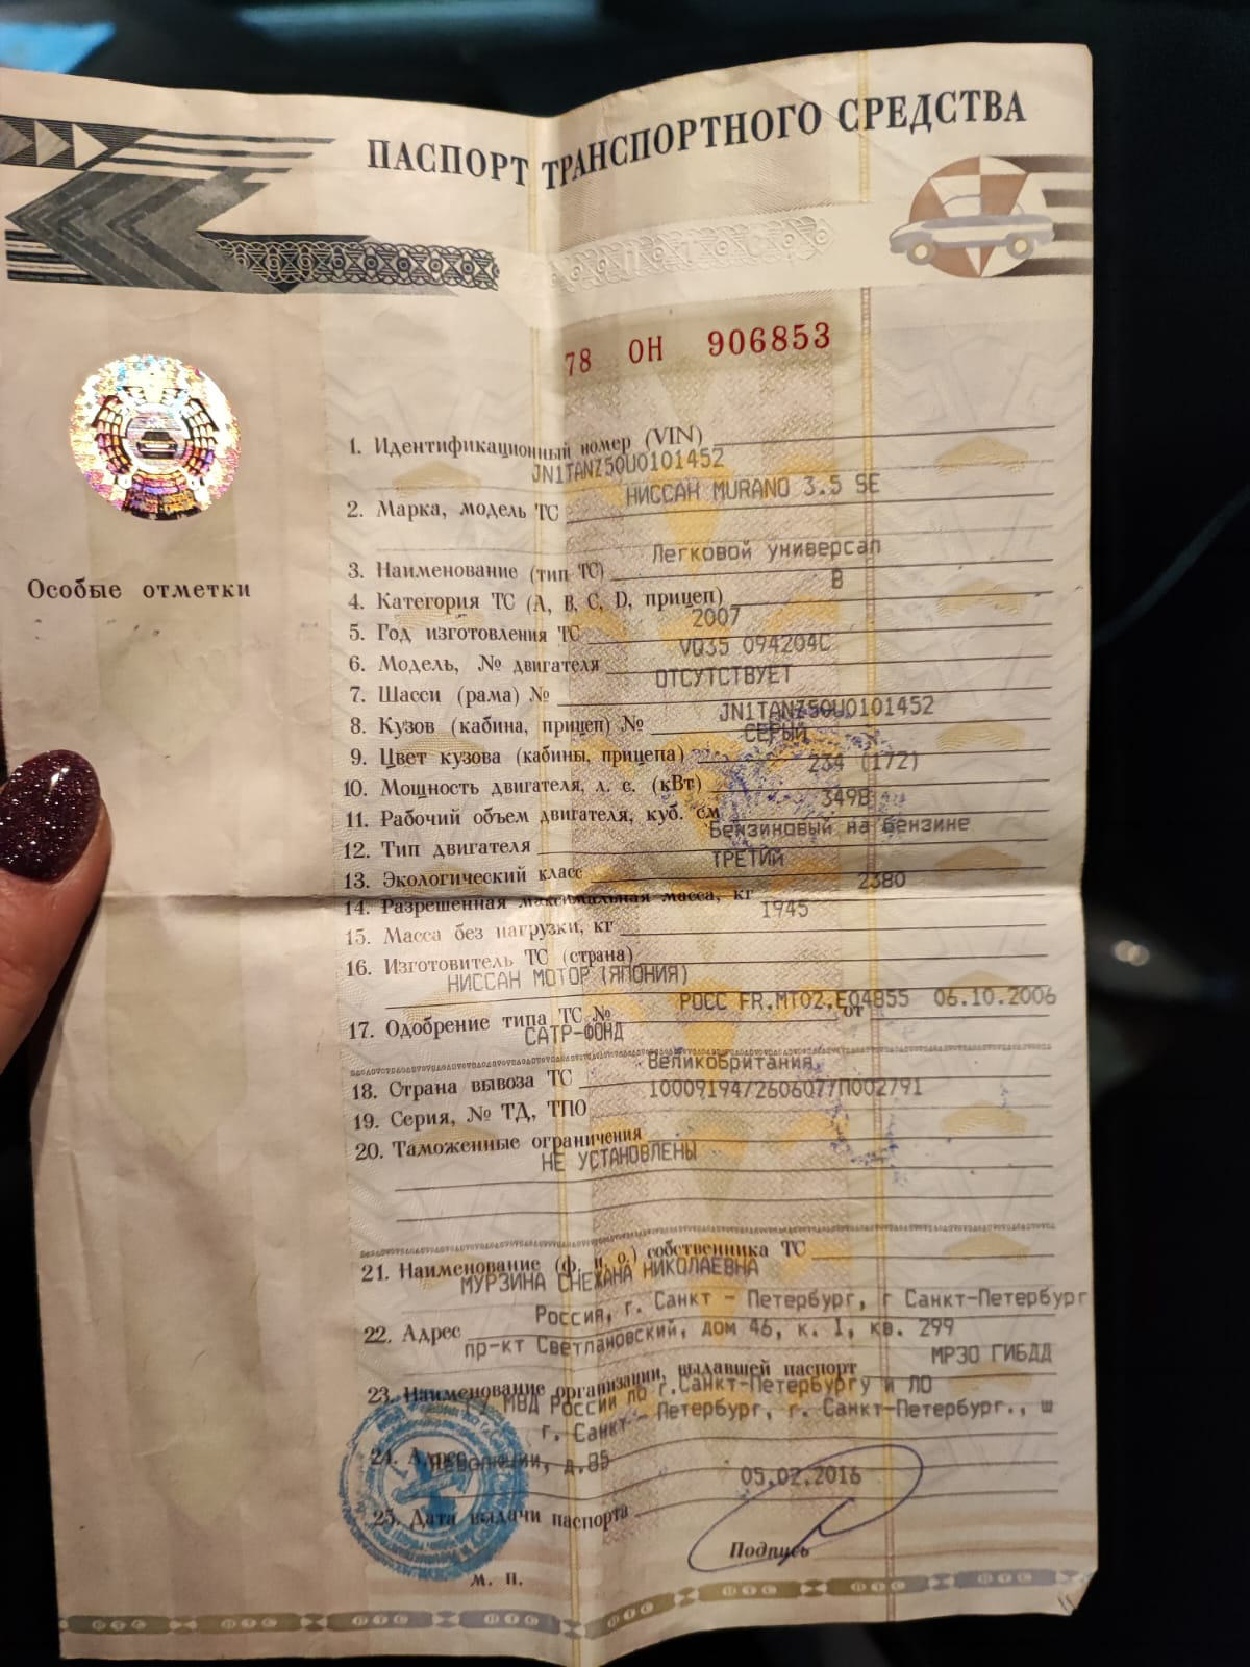 ПАСПОРТ ТРАНСПОРТНОГО СРЕДСТВА
78 ОН 906853
Особые отметки
1. Идентификационный номер (VIN)
JN1TANZ50U0101452
НИССАН MURANO 3.5 SE
2. Марка, модель ТС
Легковой универсал
3. Наименование (тип ТС)
B
4. Категория ТС (А, В, С, D, прицеп)
2007
5. Год изготовления ТС
VQ35 094204C
6. Модель, № двигателя
ОТСУТСТВУЕТ
7. Шасси (рама) №
JN1TANZ50U0101452
8. Кузов (кабина, прицеп) №
СЕРЫЙ
9. Цвет кузова (кабины, прицепа)
234 (172)
10. Мощность двигателя, л. с. (кВт)
3498
11. Рабочий объем двигателя, куб. см
Бензиновый на бензине
12. Тип двигателя
ТРЕТИЙ
13. Экологический класс
2380
14. Разрешенная максимальная масса, кг
1945
15. Масса без нагрузки, кг
16. Изготовитель ТС (страна)
НИССАН МОТОР (ЯПОНИЯ)
РОСС FR.МТ02.Е04855 06.10.2006
17. Одобрение типа ТС № от
САТР-ФОНД
Великобритания
18. Страна вывоза ТС
10009194/260607/П002791
19. Серия, № ТД, ТПО
20. Таможенные ограничения
НЕ УСТАНОВЛЕНЫ
21. Наименование (ф. и. о.) собственника ТС
МУРЗИНА СНЕЖАНА НИКОЛАЕВНА
Россия, г. Санкт - Петербург, г Санкт-Петербург
22. Адрес
пр-кт Светлановский, дом 46, к. 1, кв. 299
МРЭО ГИБДД
23. Наименование организации, выдавшей паспорт
ГУ МВД России по г.Санкт-Петербургу и ЛО
г. Санкт - Петербург, г. Санкт-Петербург., ш
24. Адрес
Революции, д.85
05.02.2016
25. Дата выдачи паспорта
Подпись
М. П.